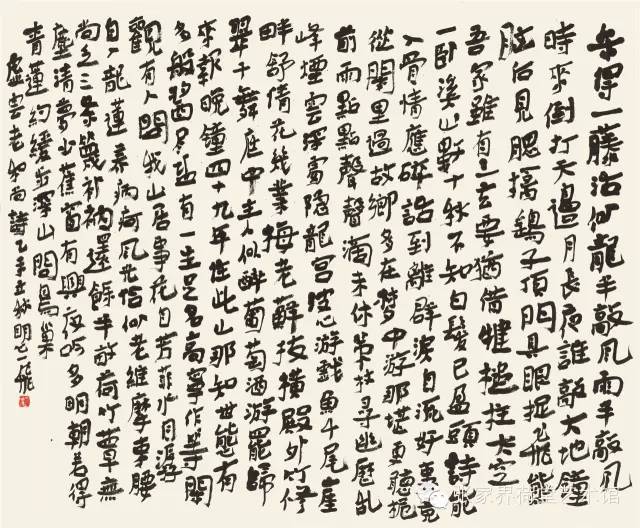 安得一藤活似龍半敲風雨半敲風
時來倒打天邊月長夜誰敲大地鐘
腦後見腮擒鷂子頂門具眼捉飛熊
吾家雖有三玄要猶借犍搥拄太空
一臥溪山數十秋不知白髮已盈頭詩能
入骨情應碎話到離群淚自流好事竟
從閑里過故鄉多在夢中游那堪更聽
前雨點點聲聲滴未休策杖尋幽歷亂
峰煙雲浮處隱龍宮游戲魚千尾崖
畔舒倩花幾叢梅老蘚枝橫殿外竹修
翠干舞庭中主人似酬葡萄酒游罷歸
來報晚鐘四十九年住此山那知世態有
多般有一生足名高寧作等閑
觀有人問我山居事花自芳菲水自潺
龍蓮養病荷風恰似老維摩束腰
尚乏三條篾補衲還餘半畝荷竹簟無
塵清夢少蕉窗有興夜吟多明朝若得
青蓮約緩步深山問鳥巢
虛雲老和尚詩乙未立秋明一飛
张家界荷堂艺术馆